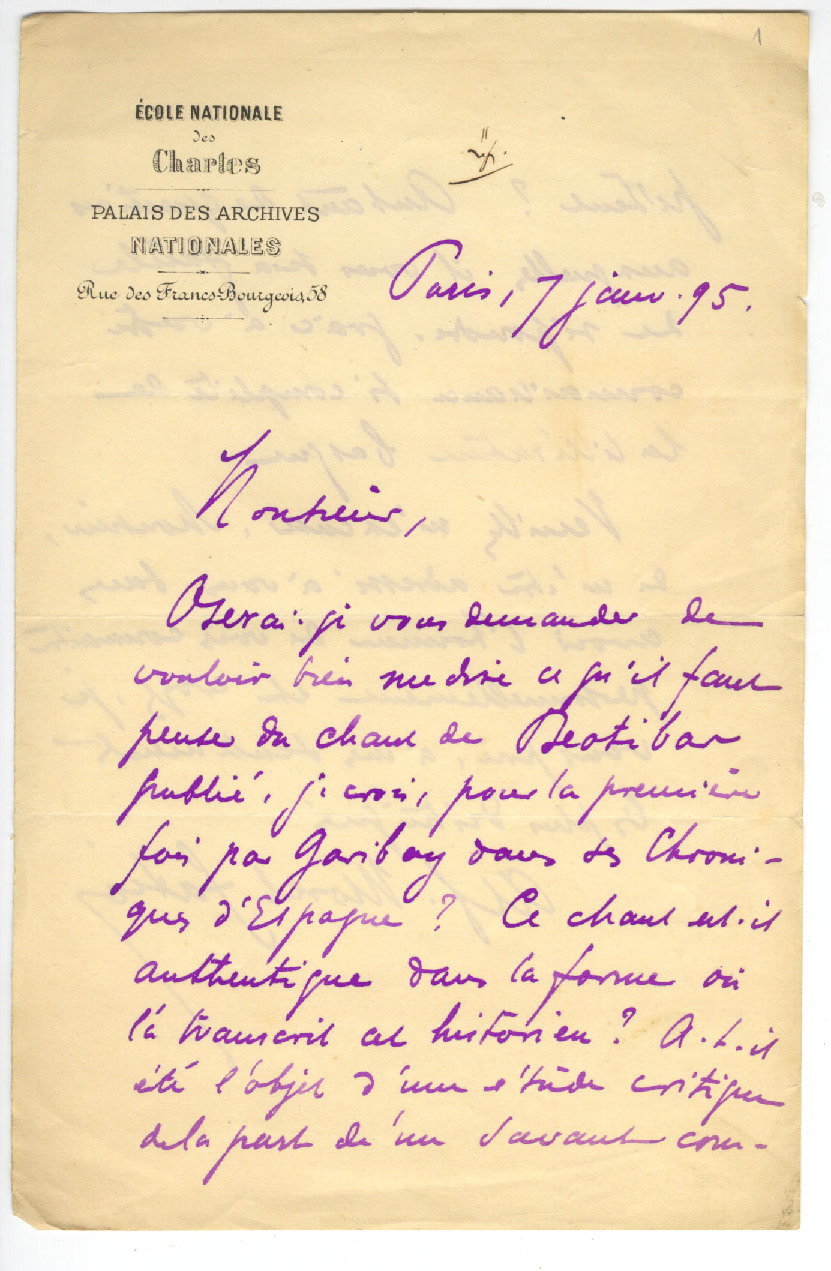 1
ÉCOLE NATIONALE
des
Chartes
PALAIS DES ARCHIVES
NATIONALES
Rue des Francs-Bourgeois, 58
Paris, 7 janv. 95.
Monsieur,
Oserai-je vous demander de
vouloir bien me dire ce qu'il faut
penser du chant de Beotibar
publié, je crois, pour la première
fois par Garibay dans ses Chroni-
ques d'Espagne ? Ce chant est-il
authentique dans la forme où
l'a transcrit cet historien ? A-t-il
été l'objet d'une étude critique
de la part d'un savant com-